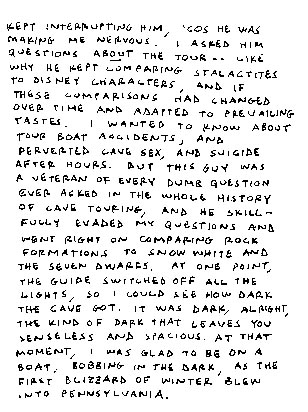 KEPT INTERRUPTING HIM, 'COS HE WAS
MAKING ME NERVOUS. I ASKED HIM
QUESTIONS ABOUT THE TOUR -- LIKE
WHY HE KEPT COMPARING STALACTITES
TO DISNEY CHARACTERS, AND IF
THESE COMPARISONS HAD CHANGED
OVER TIME AND ADAPTED TO PREVAILING
TASTES. I WANTED TO KNOW ABOUT
TOUR BOAT ACCIDENTS, AND
PERVERTED CAVE SEX, AND SUICIDE
AFTER HOURS. BUT THIS GUY WAS
A VETERAN OF EVERY DUMB QUESTION
EVER ASKED IN THE WHOLE HISTORY
OF CAVE TOURING, AND HE SKILL-
FULLY EVADED MY QUESTIONS AND
WENT RIGHT ON COMPARING ROCK
FORMATIONS TO SNOW WHITE AND
THE SEVEN DWARFS. AT ONE POINT,
THE GUIDE SWITCHED OFF ALL THE
LIGHTS, SO I COULD SEE HOW DARK
THE CAVE GOT. IT WAS DARK, ALRIGHT,
THE KIND OF DARK THAT LEAVES YOU
SENSELESS AND SPACIOUS. AT THAT
MOMENT, I WAS GLAD TO BE ON A
BOAT, BOBBING IN THE DARK, AS THE
FIRST BLIZZARD OF WINTER BLEW
INTO PENNSYLVANIA.